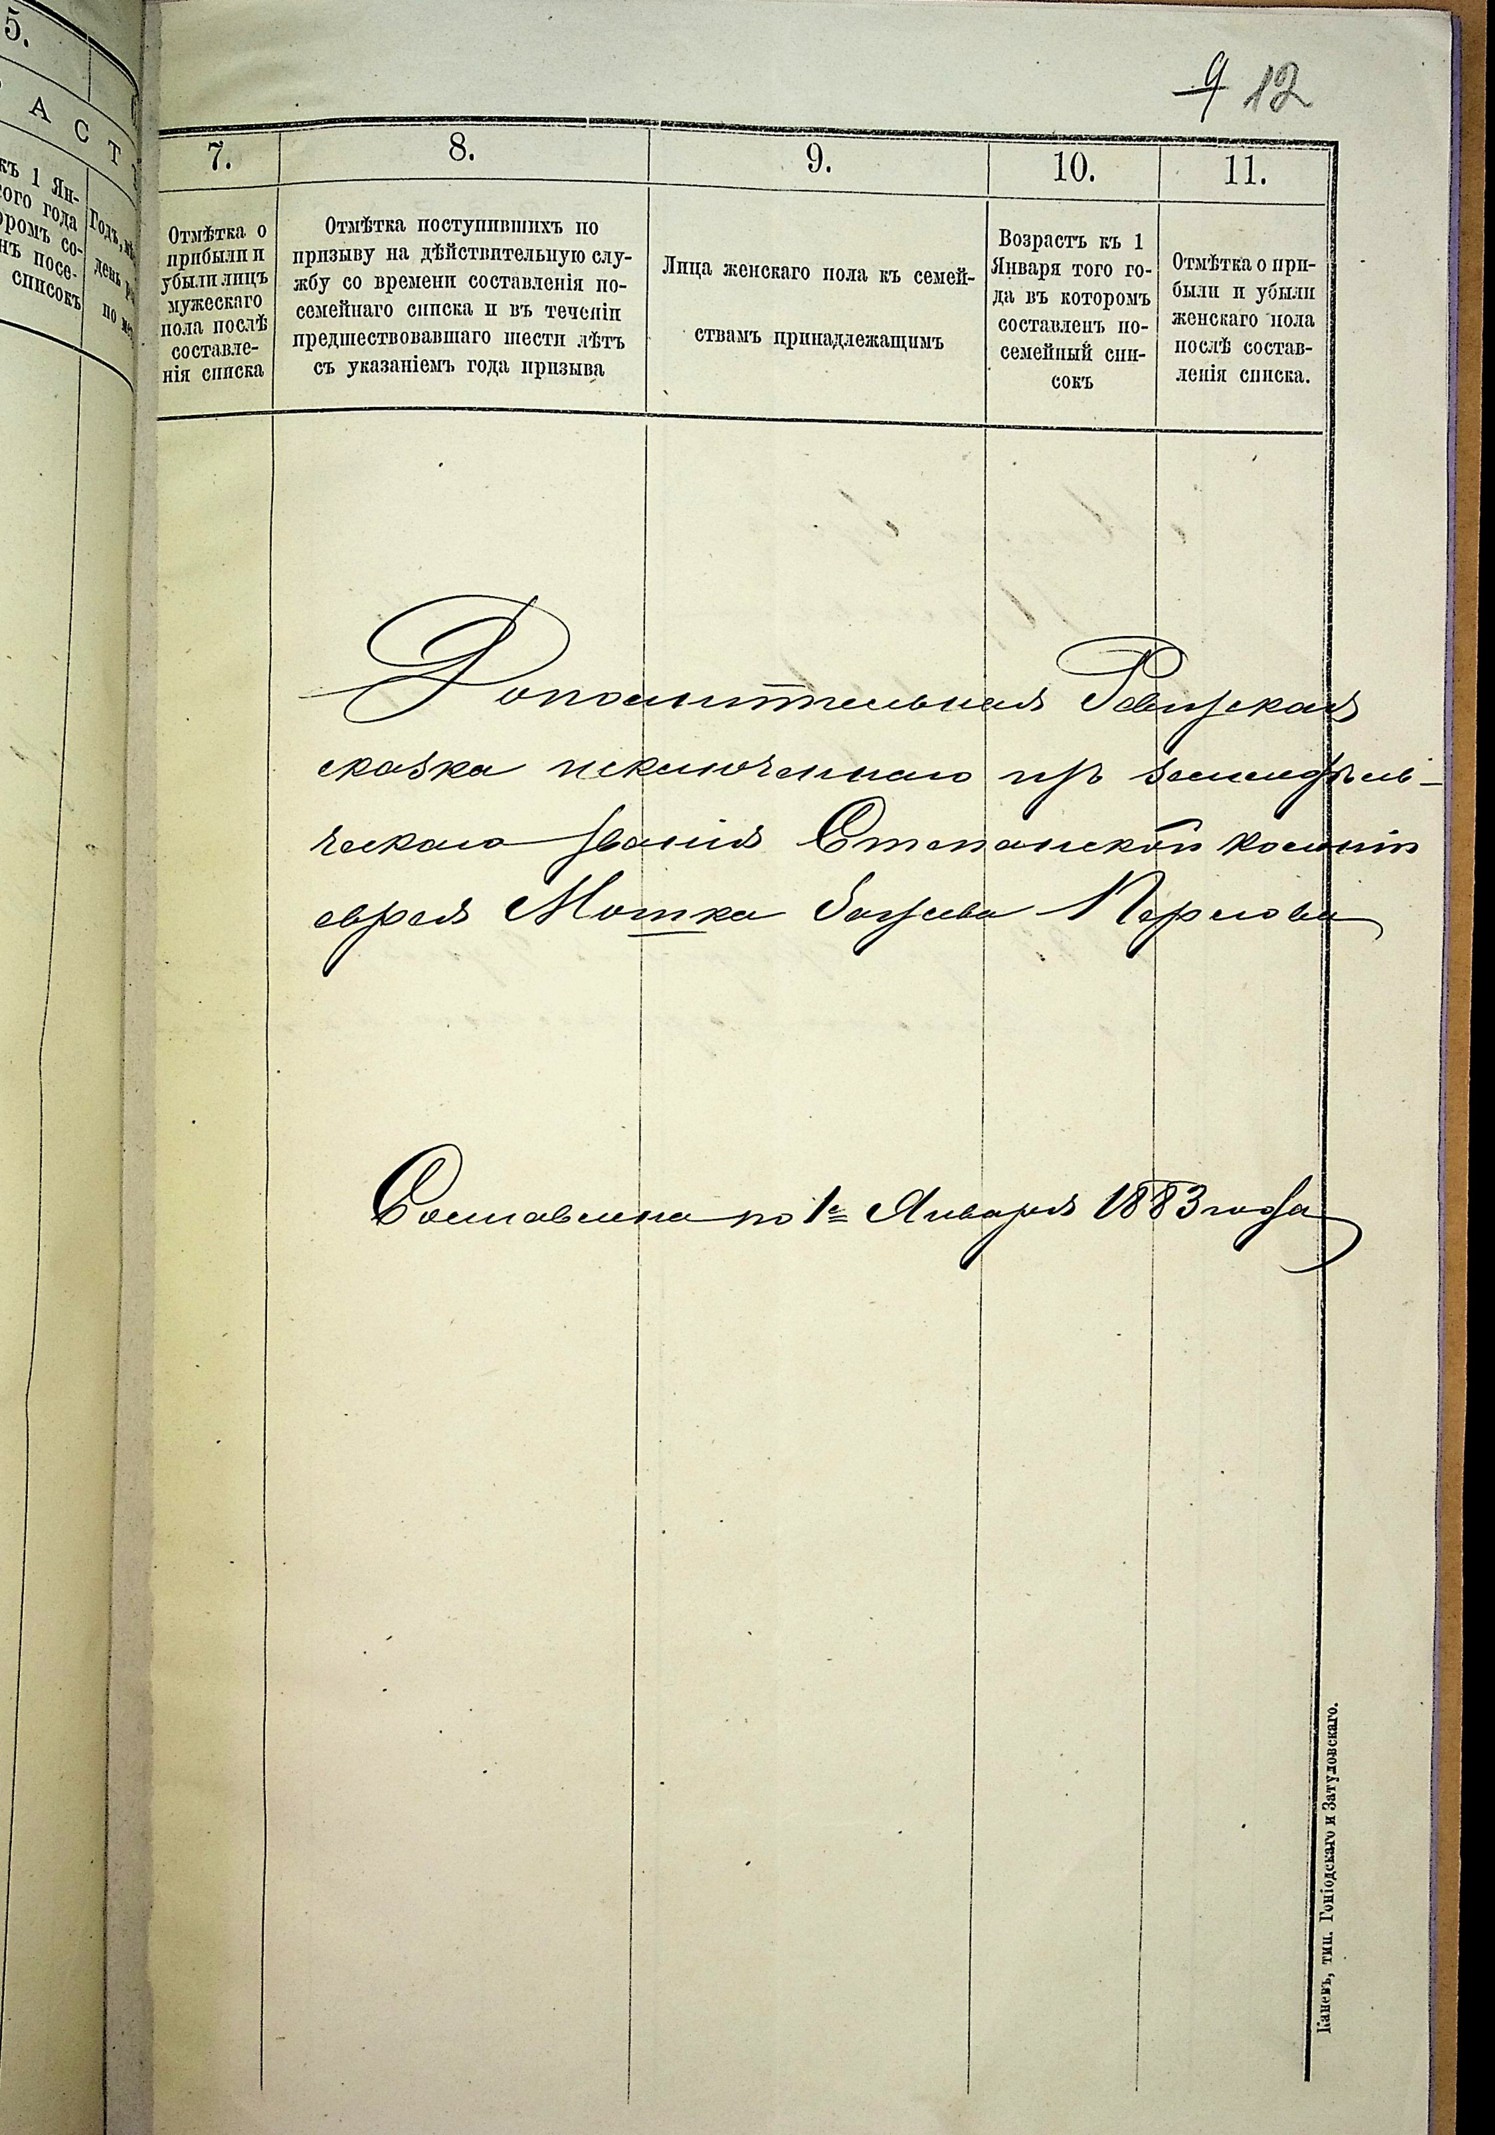 5.
А С Т
къ 1 Ян-
ого года
ромъ со-
нъ посе-
списокъ
Годъ,
день
по
9 12
7.
8.
9.
10.
11.
Отмѣтка о
прибыли и
убыли лицъ
мужескаго
пола послѣ
составле-
нія списка
Отмѣтка поступившихъ по
призыву на дѣйствительную слу-
жбу со времени составленія по-
семейнаго списка и въ теченіи
предшествовавшаго шести лѣтъ
съ указаніемъ года призыва
Лица женскаго пола къ семей-
ствамъ принадлежащимъ
Возрастъ къ 1
Января того го-
да въ которомъ
составленъ по-
семейный спи-
сокъ
Отмѣтка о при-
были и убыли
женскаго пола
послѣ состав-
ленія списка.
Дополнительная Ревизская
сказка исключеннаго изъ земледѣль-
ческаго званія Степанской колоніи
еврея Мотка
Составлена по 1е Января 1883 года
Каневъ, тип. Гоніодскаго и Затуловскаго.